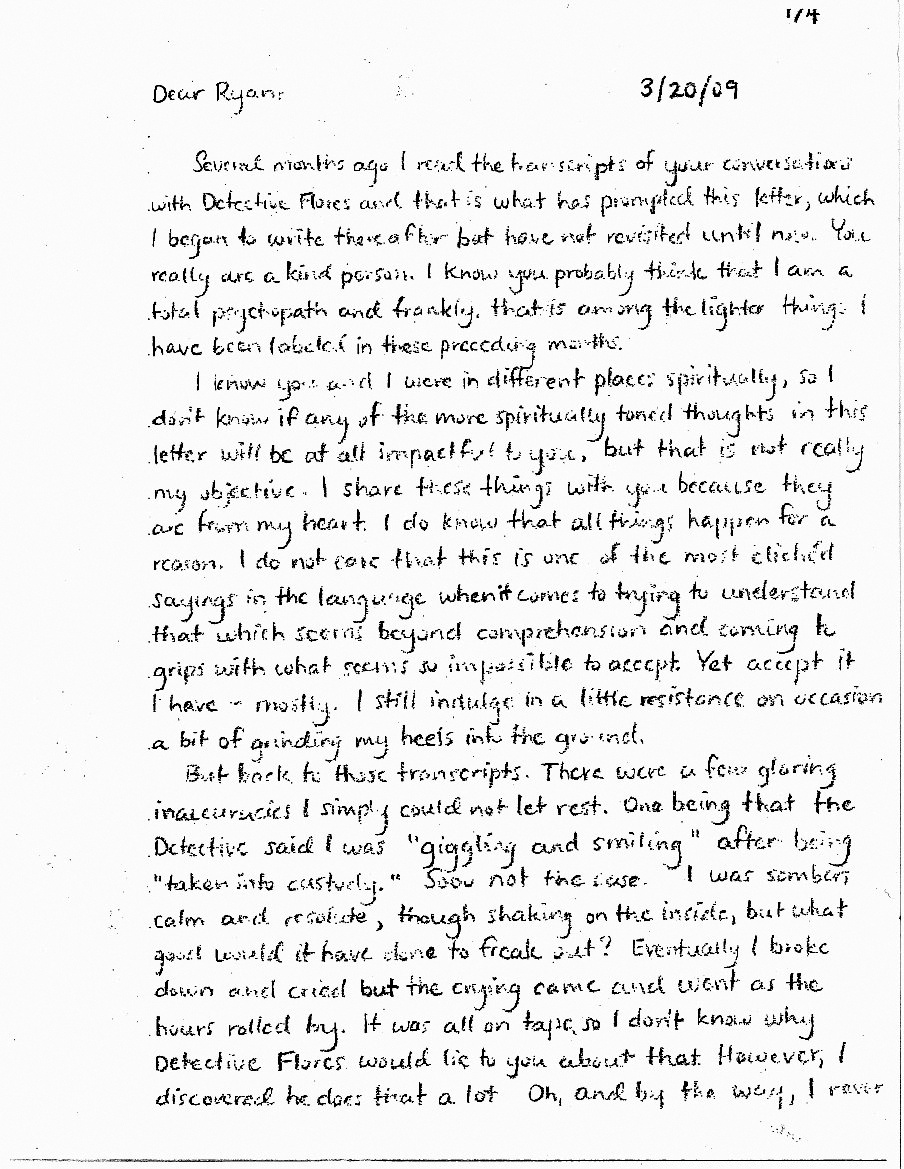 1/4
Dear Ryan: 3/20/09
Several months ago I read the transcripts of your conversations
with Detective Flores and that is what has prompted this letter, which
I began to write thereafter but have not revisited until now. You
really are a kind person. I know you probably think that I am a
total psychopath and frankly, that is among the lighter things I
have been labeled in these preceding months.
I know you and I were in different places spiritually, so I
don't know if any of the more spiritually toned thoughts in this
letter will be at all impactful to you, but that is not really
my objective. I share these things with you because they
are from my heart. I do know that all things happen for a
reason. I do not care that this is one of the most clichéd
sayings in the language when it comes to trying to understand
that which seems beyond comprehension and coming to
grips with what seems so impossible to accept. Yet accept it
I have - mostly. I still indulge in a little resistance on occasion
a bit of grinding my heels into the ground.
But back to those transcripts. There were a few glaring
inaccuracies I simply could not let rest. One being that the
Detective said I was "giggling and smiling" after being
"taken into custody." Sooo not the case. I was somber,
calm and resolute, though shaking on the inside, but what
good would it have done to freak out? Eventually I broke
down and cried but the crying came and went as the
hours rolled by. It was all on tape, so I don't know why
Detective Flores would lie to you about that. However, I
discovered he does that a lot. Oh, and by the way, I never